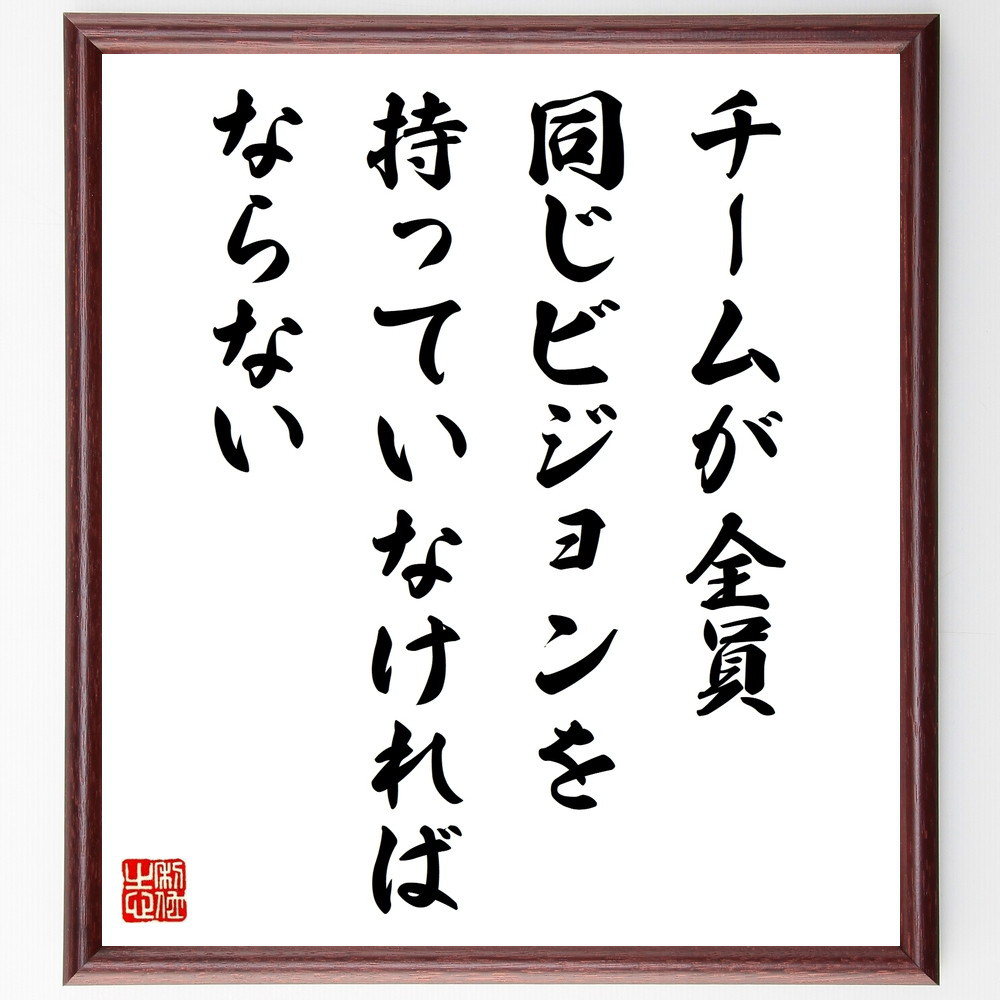 チームが全員
同じビジョンを
持っていなければ
ならない